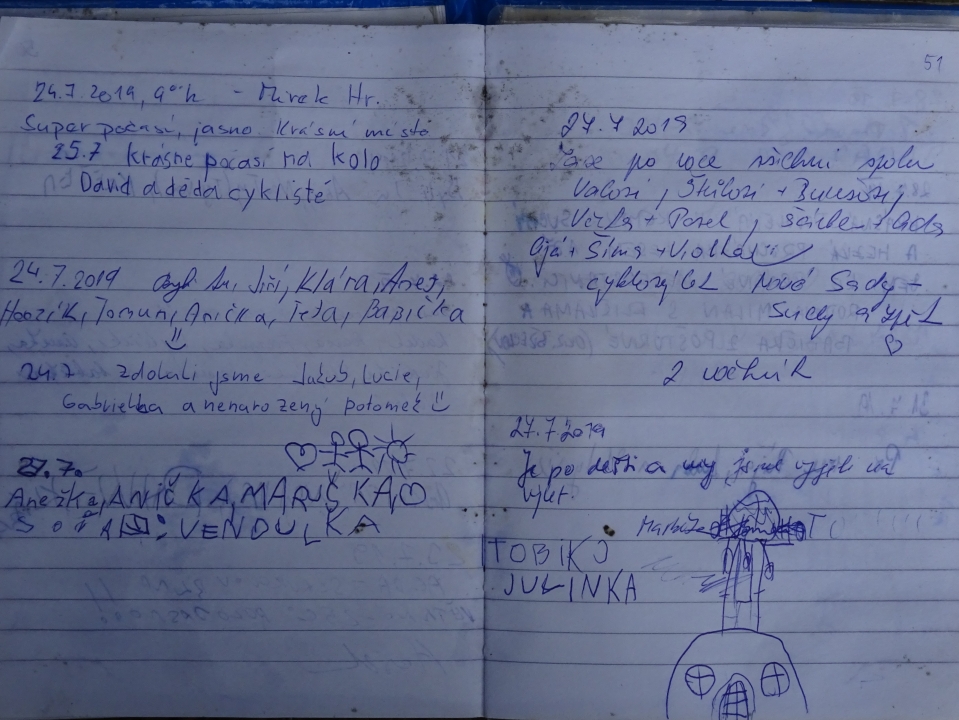 24.7.2019, 9⁰⁰h - Mirek Hr.
Super počasí, jasno Krásné místo
25.7 krásné počasí na kolo
David a děda cyklisté
24.7.2019 Jiří, Klára, Anet,
Toman, Anička, Teta, Babička
24.7 zdolali jsme Jakub, Lucie,
Gabrielka a nenarozený potomek
27.7.
Anežka, ANIČKA, MARUŠKA,
VENDULKA
51
27.7 2019
po roce všichni spolu
Valovi, +
+ Pavel, + Áda
+ Šíma + Violka
cyklovýlet Nové Sady -
Suchý a zpět
2 ročník
27.7 2019
Je po dešti a my jsme vyjeli na
výlet.
TOBIK
JULINKA